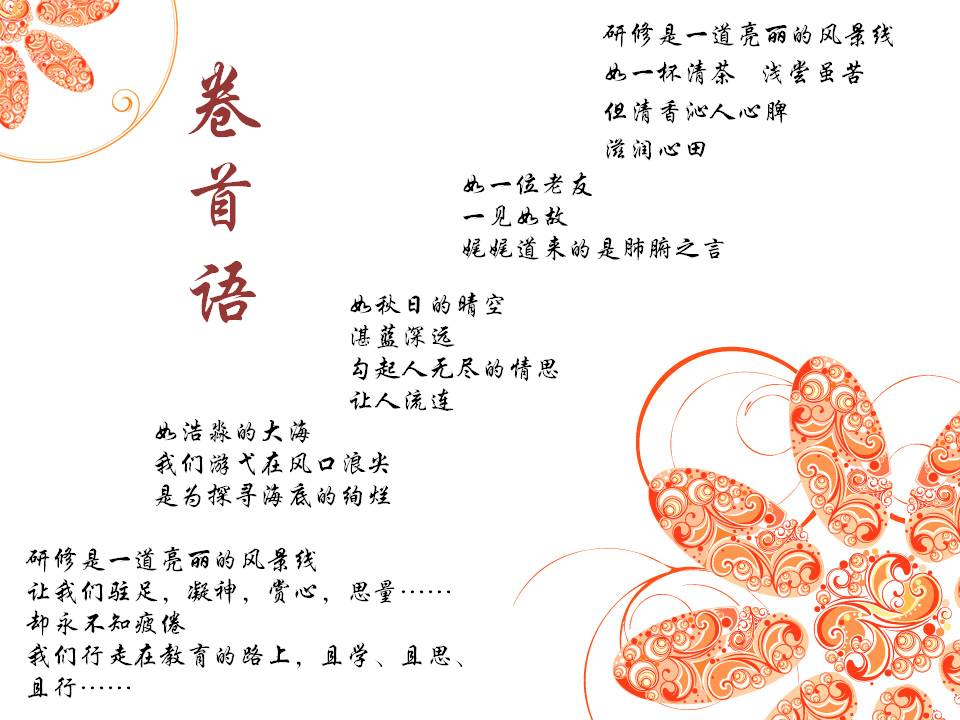 卷首语
研修是一道亮丽的风景线
如一杯清茶 浅尝虽苦
但清香沁人心脾
滋润心田
如一位老友
一见如故
娓娓道来的是肺腑之言
如秋日的晴空
湛蓝深远
勾起人无尽的情思
让人流连
如浩淼的大海
我们游弋在风口浪尖
是为探寻海底的绚烂
研修是一道亮丽的风景线
让我们驻足，凝神，赏心，思量……
却永不知疲倦
我们行走在教育的路上，且学、且思、
且行……